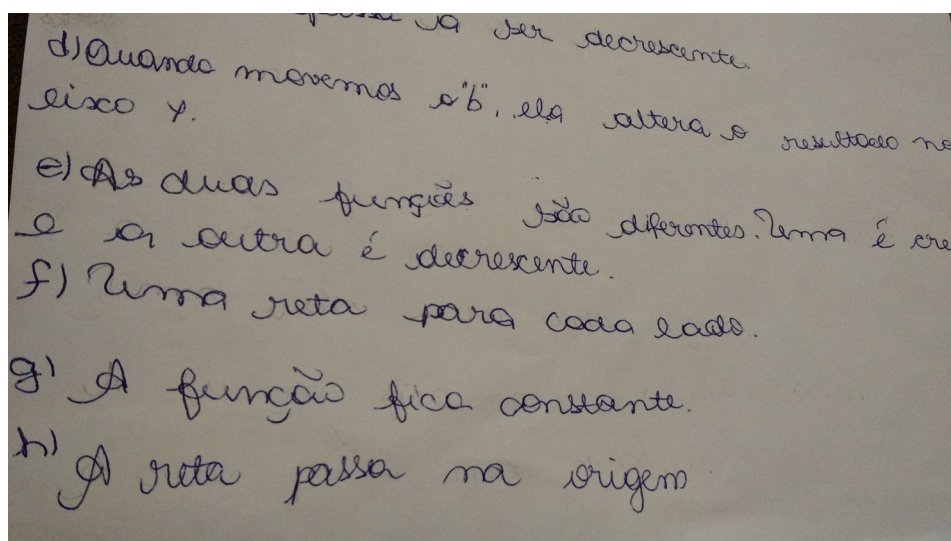 passa a ser decrescente.
d) Quando movemos o "b", ela altera o resultado no
eixo y.
e) As duas funções são diferentes. Uma é cre
e a outra é decrescente.
f) Uma reta para cada lado.
g) A função fica constante.
h) A reta passa na origem